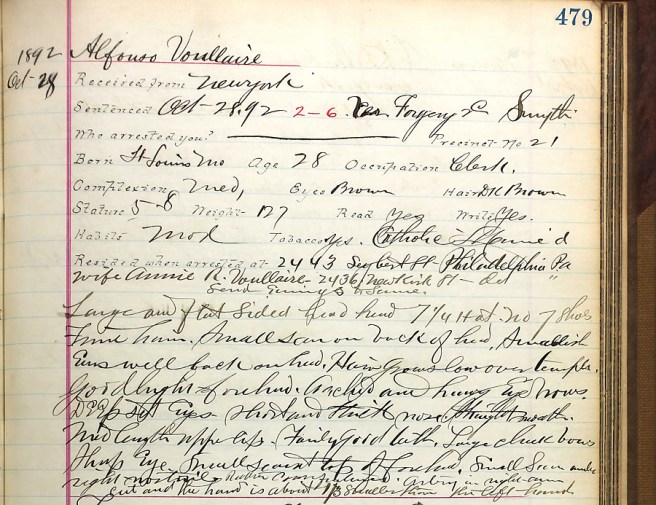 479
1892 Alfonso Voullaire
Oct-28 Received from Newyork
Sentenced Oct-28,92 2-6. Yrs Forgery 2 Smyth
Who arrested you? Precinct No 21
Born St Louis Mo Age 28 Occupation Clerk.
Complexion Med, Eyes Brown Hair DK Brown
Stature 5-8 Weight 127 Read Yes Write Yes.
Habits Mod Tobacco Yes. Catholic Married
Resided when arrested at 2443 St- Philadelphia Pa
Wife Annie R. Voullaire- 2436 Newkirk St- "
Send to same.
Large and flat sided head 7 1/4 Hat. No 7 Shoes
Fine hair. Small scar on back of head, Smallish
Ears well back on head, Hair grows low over temple.
Good height forehead. Arched and heavy Eye brows.
Deep set Eyes. Short and thick nose. Straight mouth.
Med length upper lip. Fairly good teeth, Large cheek bones
Sharp Eye. Small scar top of forehead, Small Scar under
right nostril- in right arm
and the hand is about smaller than the left hand